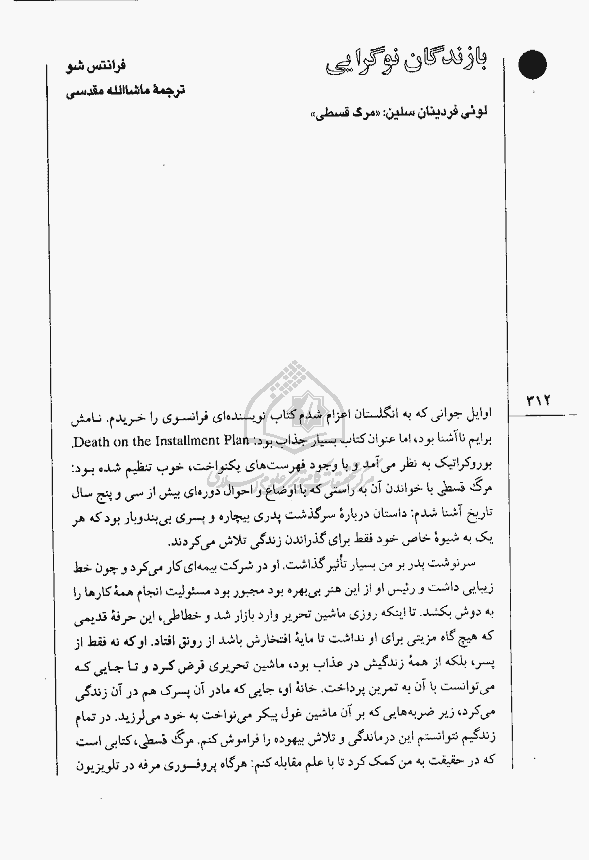 بازندگان نوگرایی
فرانتس شو
ترجمهٔ ماشاالله مقدسی
لوئی فردینان سلین: «مرگ قسطی»
۳۱۲
اوایل جوانی که به انگلستان اعزام شدم کتاب نویسنده‌ای فرانسوی را خریدم. نامش
برایم ناآشنا بود، اما عنوان کتاب بسیار جذاب بود: Death on the Installment Plan.
بوروکراتیک به نظر می‌آمد و با وجود فهرست‌های یکنواخت، خوب تنظیم شده بود:
مرگ قسطی با خواندن آن به راستی که با اوضاع و احوال دوره‌ای بیش از سی و پنج سال
تاریخ آشنا شدم: داستان دربارهٔ سرگذشت پدری بیچاره و پسری بی‌بندوبار بود که هر
یک به شیوهٔ خاص خود فقط برای گذراندن زندگی تلاش می‌کردند.
سرنوشت پدر بر من بسیار تأثیر گذاشت. او در شرکت بیمه‌ای کار می‌کرد و چون خط
زیبایی داشت و رئیس او از این هنر بی‌بهره بود مجبور بود مسئولیت انجام همهٔ کارها را
به دوش بکشد. تا اینکه روزی ماشین تحریر وارد بازار شد و خطاطی، این حرفهٔ قدیمی
که هیچ گاه مزیتی برای او نداشت تا مایهٔ افتخارش باشد از رونق افتاد. او که نه فقط از
پسر، بلکه از همهٔ زندگیش در عذاب بود، ماشین تحریری قرض کرد و تا جایی که
می‌توانست با آن به تمرین پرداخت. خانهٔ او، جایی که مادر آن پسرک هم در آن زندگی
می‌کرد، زیر ضربه‌هایی که بر آن ماشین غول پیکر می‌نواخت به خود می‌لرزید. در تمام
زندگیم نتوانستم این درماندگی و تلاش بیهوده را فراموش کنم. مرگ قسطی، کتابی است
که در حقیقت به من کمک کرد تا با علم مقابله کنم: هرگاه پروفسوری مرفه در تلویزیون